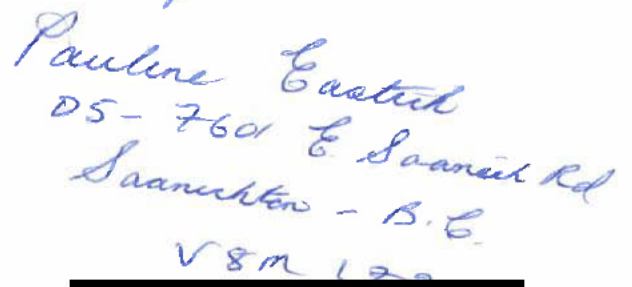 Pauline
D5 - 7601 E. Saanich Rd
Saanichton - B.C.
V8M